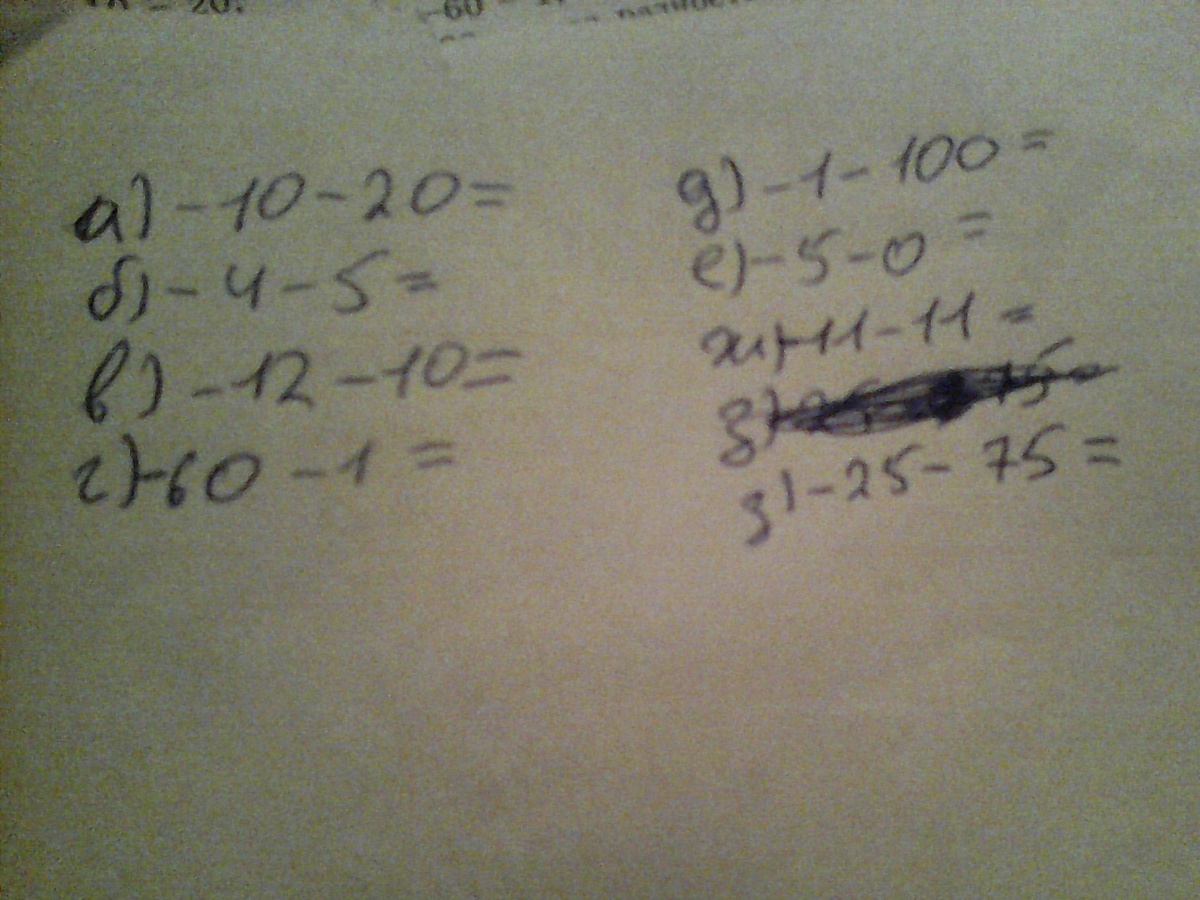 60
а) -10-20=
б) -4-5=
в) -12-10=
г) -60-1=
д) -1-100=
е) -5-0=
ж) -11-11=
з)
з) -25-75=